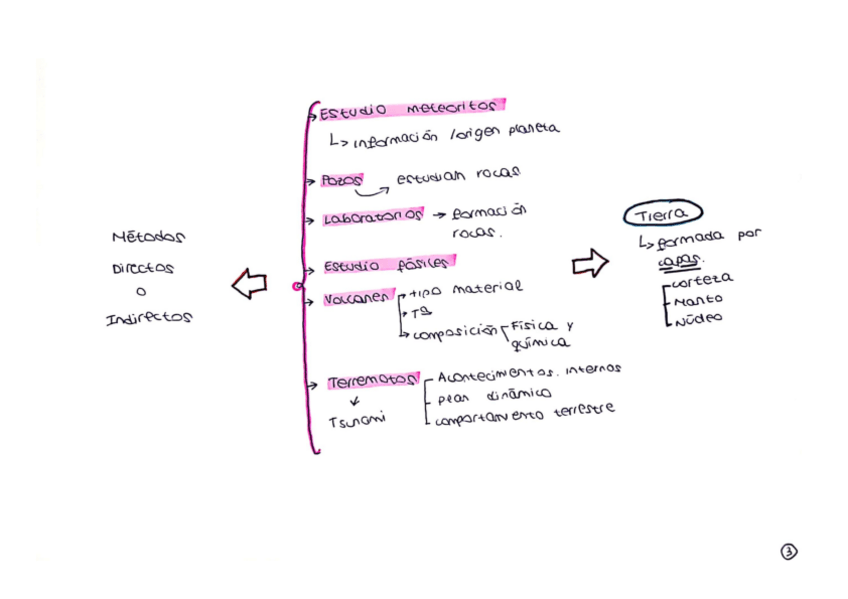 Estudio meteoritos
información /origen planeta
Pozos estudian rocas
Laboratorios formación
rocas.
Estudio fósiles
Volcanes tipo material
Tª
composición Física y
química
Terremotos Acontecimentos. internos
dinámico
Tsunami comportamiento terrestre
Métodos
Directos
o
Indirectos
Tierra
formada por
capas.
corteza
Manto
Núcleo
3